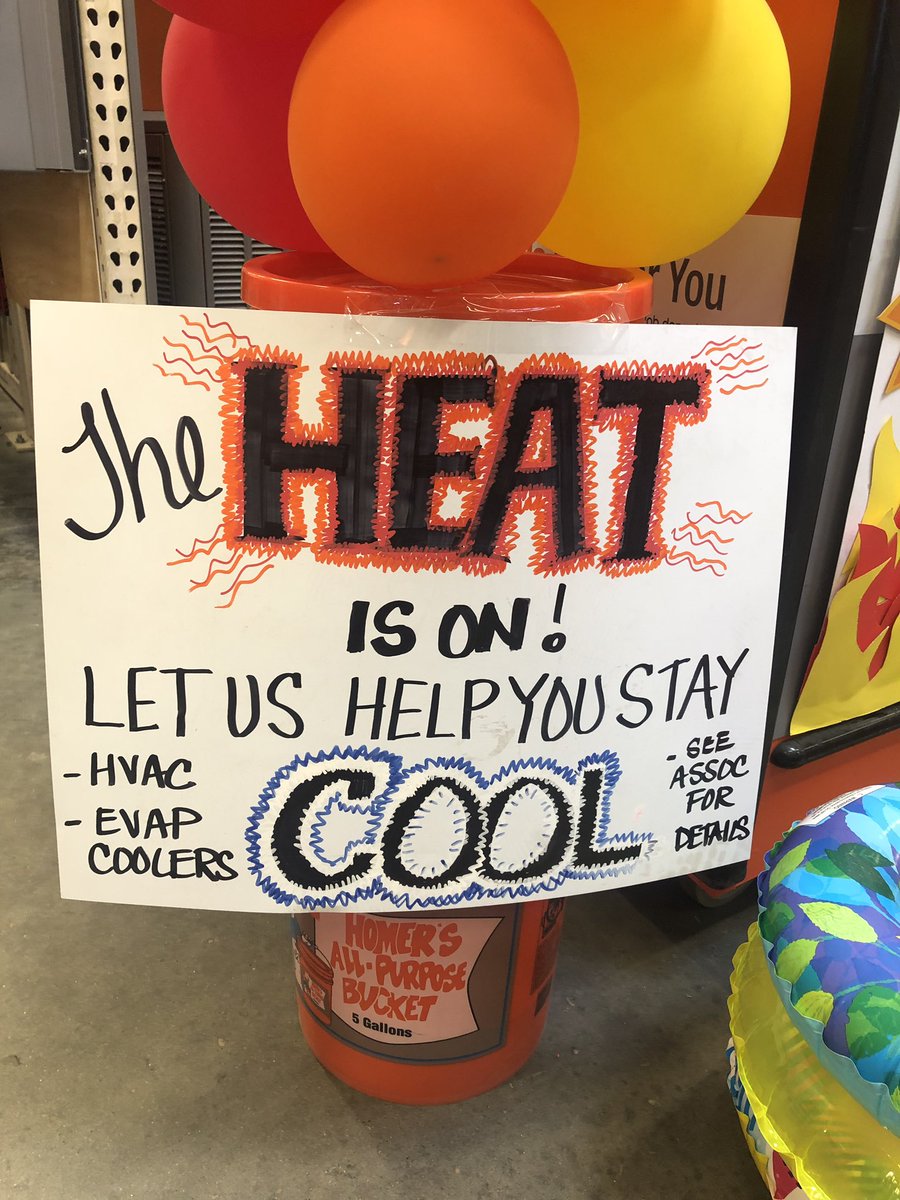 r You
The HEAT
IS ON!
LET US HELP YOU STAY
COOL
- HVAC
- EVAP
COOLERS
- SEE
ASSOC
FOR
DETAILS
HOMER'S
ALL-PURPOSE
BUCKET
5 Gallons